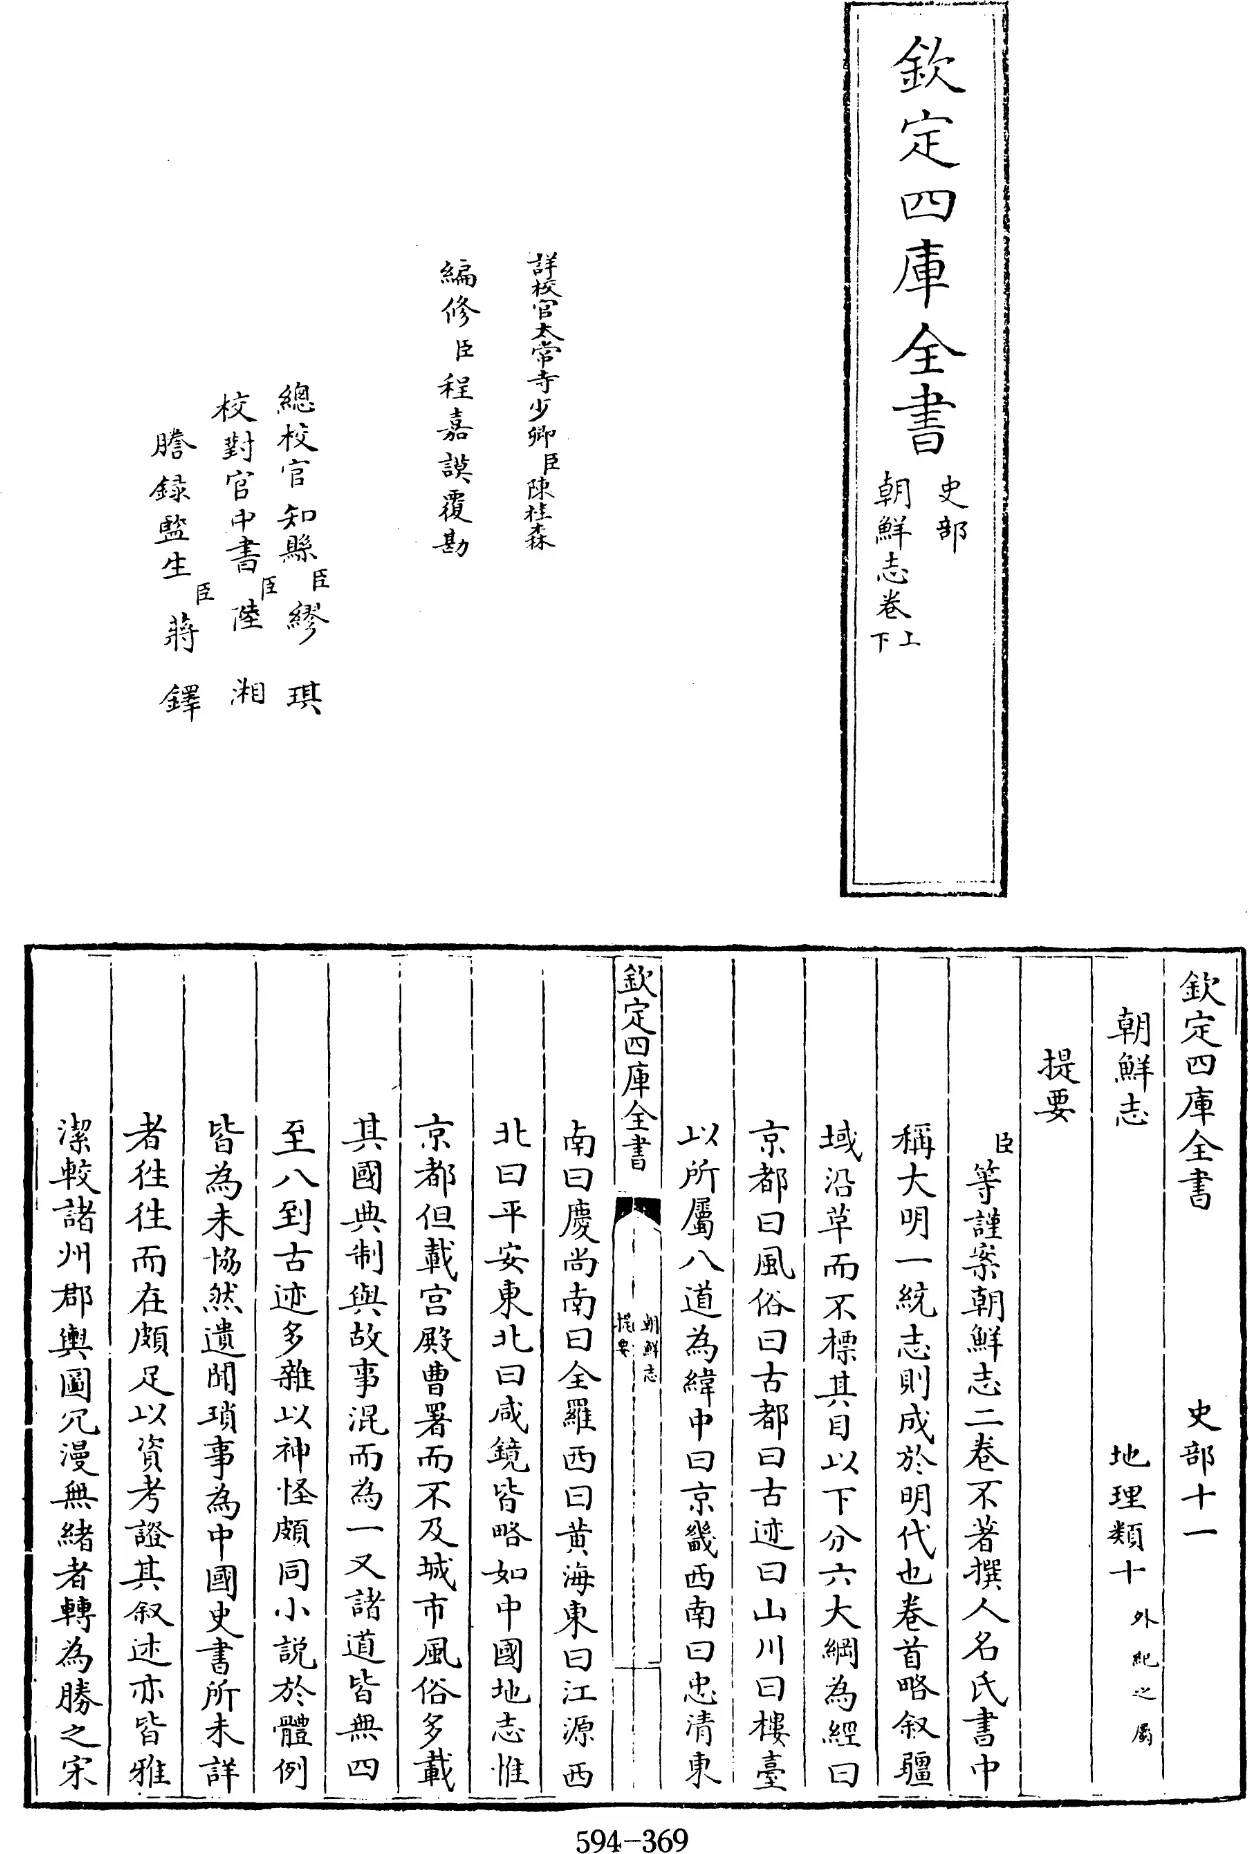 欽定四庫全書
史部
朝鮮志卷上下
詳校官太常寺少卿臣陳桂森
編修臣程嘉謨覆勘
總校官知縣臣繆琪
校對官中書臣陸湘
謄錄監生臣蔣鐸
欽定四庫全書 史部十一
朝鮮志 地理類十外紀之屬
提要
臣等謹案朝鮮志二卷不著撰人名氏書中
稱大明一統志則成於明代也卷首略叙疆
域沿革而不標其目以下分六大綱為經曰
京都曰風俗曰古都曰古迹曰山川曰樓臺
以所屬八道為緯中曰京畿西南曰忠清東
欽定四庫全書
朝鮮志
提要
南曰慶尚南曰全羅西曰黄海東曰江源西
北曰平安東北曰咸鏡皆略如中國地志惟
京都但載宫殿曹署而不及城市風俗多載
其國典制與故事混而為一又諸道皆無四
至八到古迹多雜以神怪頗同小説於體例
皆為未協然遺聞瑣事為中國史書所未詳
者徃徃而在頗足以資考證其叙述亦皆雅
潔較諸州郡輿圖冗漫無緒者轉為勝之宋
594-369